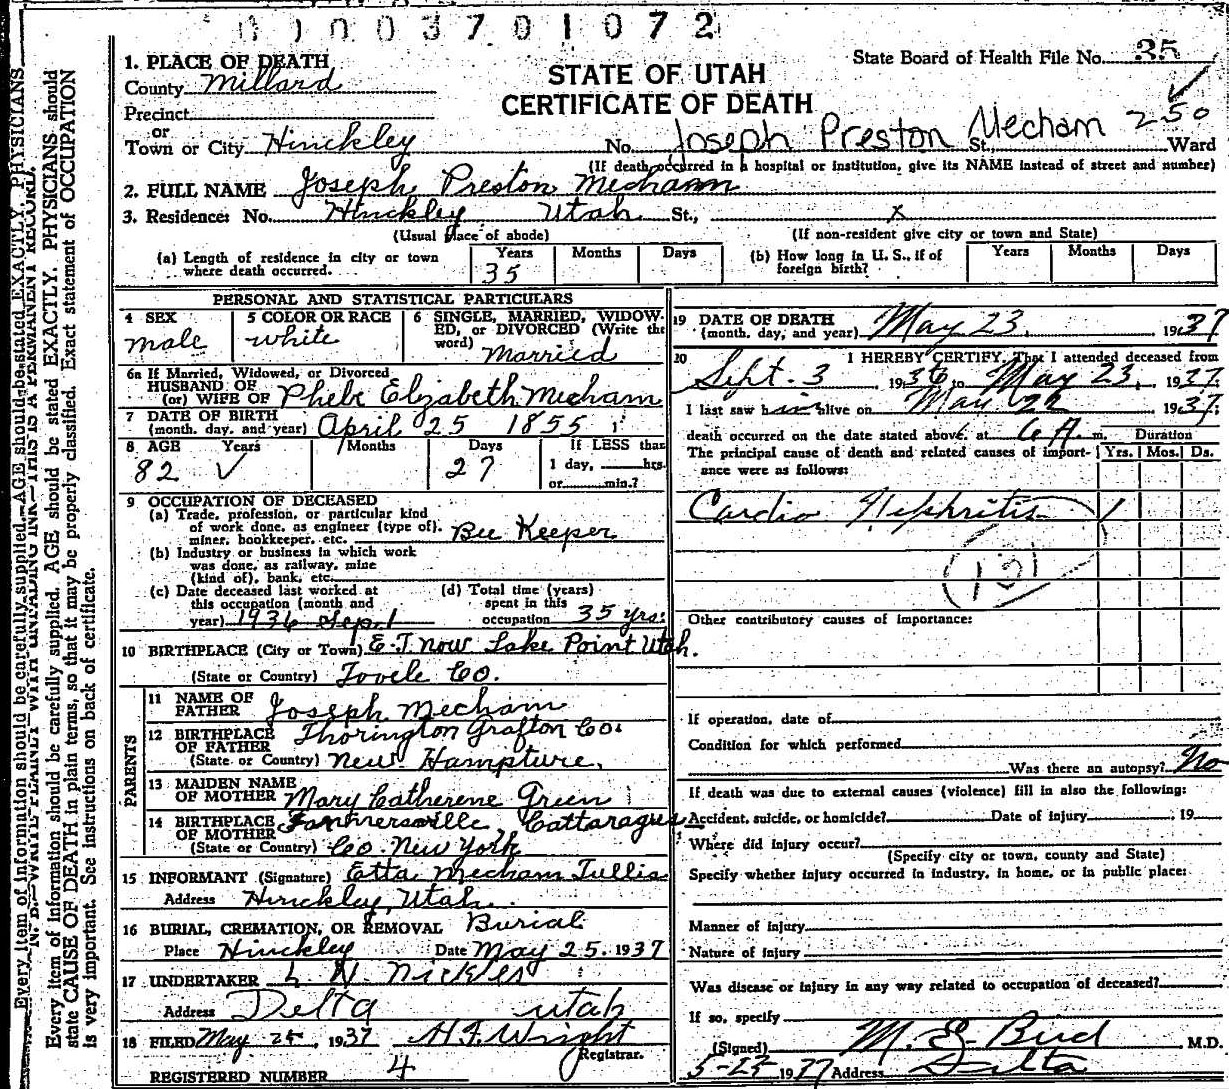 01003701072
State Board of Health File No. 35
STATE OF UTAH
CERTIFICATE OF DEATH
1. PLACE OF DEATH
County Millard
Precinct
or
Town or City Hinckley No. Joseph Preston Mecham St., 250 Ward
(If death occurred in a hospital or institution, give its NAME instead of street and number)
2. FULL NAME Joseph Preston Mecham
3. Residence: No. Hinckley Utah St., x
(Usual place of abode) (If non-resident give city or town and State)
(a) Length of residence in city or town where death occurred. Years 35 Months Days
(b) How long in U. S., if of foreign birth? Years Months Days
PERSONAL AND STATISTICAL PARTICULARS
4 SEX male
5 COLOR OR RACE white
6 SINGLE, MARRIED, WIDOW-
ED, or DIVORCED (Write the
word) Married
6a If Married, Widowed, or Divorced
HUSBAND OF
(or) WIFE OF Phebe Elizabeth Mecham
7 DATE OF BIRTH
(month, day, and year) April 25 1855
8 AGE Years Months Days If LESS than
82 27 1 day, hrs.
or min.?
9 OCCUPATION OF DECEASED
(a) Trade, profession, or particular kind
of work done, as engineer (type of),
miner, bookkeeper, etc. Bee Keeper
(b) Industry or business in which work
was done, as railway, mine
(kind of), bank, etc.
(c) Date deceased last worked at
this occupation (month and
year) 1936 Sept 1
(d) Total time (years)
spent in this
occupation 35 yrs.
10 BIRTHPLACE (City or Town) E.T. now Lake Point Utah.
(State or Country) Tooele Co.
PARENTS
11 NAME OF
FATHER Joseph Mecham
12 BIRTHPLACE Thorington Grafton Co.
OF FATHER
(State or Country) New Hampture.
13 MAIDEN NAME
OF MOTHER Mary Catherene Green
14 BIRTHPLACE Cattaragus
OF MOTHER
(State or Country) Co. New York
15 INFORMANT (Signature) Etta Mecham Tullis
Address Hinckley, Utah.
16 BURIAL, CREMATION, OR REMOVAL Burial
Place Hinckley Date May 25. 1937
17 UNDERTAKER Nickles
Address Delta Utah
18 FILED May 1937 H. F. Wright
Registrar.
REGISTERED NUMBER 4
19 DATE OF DEATH
(month, day, and year) May 23, 1937
20 I HEREBY CERTIFY, That I attended deceased from
Sept. 3 1936 to May 23, 1937.
I last saw him alive on May 22 1937;
death occurred on the date stated above, at 6 A. m. Duration
The principal cause of death and related causes of import-
ance were as follows: Yrs. Mos. Ds.
Cardio Nephritis
131
Other contributory causes of importance:
If operation, date of
Condition for which performed
Was there an autopsy? No
If death was due to external causes (violence) fill in also the following:
Accident, suicide, or homicide? Date of injury 19
Where did injury occur?
(Specify city or town, county and State)
Specify whether injury occurred in industry, in home, or in public place:
Manner of injury
Nature of injury
Was disease or injury in any way related to occupation of deceased?
If so, specify
(Signed) M. E. Bird M.D.
19 37 Address Delta
Every item of information should be carefully supplied. AGE should be stated EXACTLY. PHYSICIANS
N. B.—WRITE PLAINLY WITH UNFADING INK—THIS IS A PERMANENT RECORD.
Every item of information should be carefully supplied. AGE should be stated EXACTLY. PHYSICIANS should
state CAUSE OF DEATH in plain terms, so that it may be properly classified. Exact statement of OCCUPATION
is very important. See instructions on back of certificate.